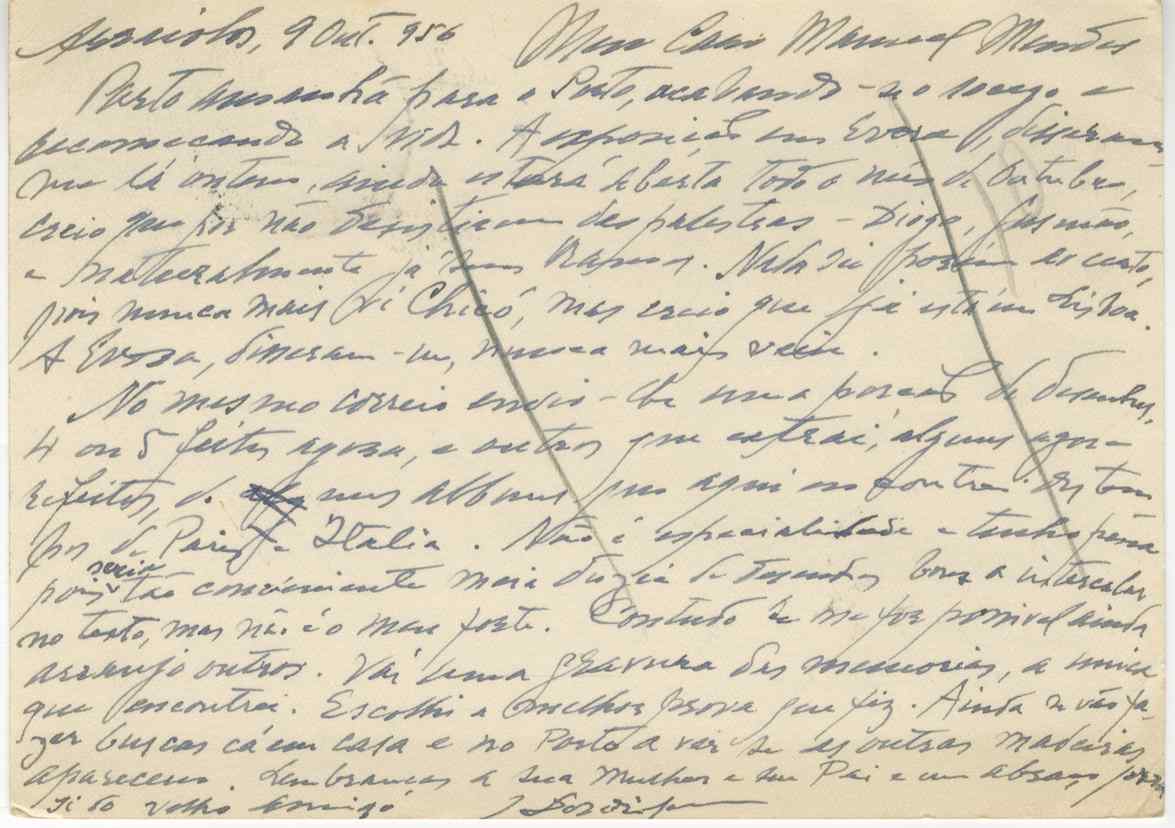 Arraiolos, 9 Out. 956 Meu Caro Manuel Mendes
Parto amanhã para o Porto, acabando-se o socego e
recomeçando a vida. A exposição em Evora, disseram-
me lá ontem, ainda estará aberta todo o mês de Outubro,
creio que por não desistirem das palestras - Diogo, Gusmão,
e naturalmente já sem Ramos. Nada sei porém ao certo,
pois nunca mais vi Chicó, mas creio que já está em Lisboa.
A Evora, disseram-me, nunca mais veiu.
No mesmo correio envio-lhe uma porção de desenhos,
4 ou 5 feitos agora, e outros que extraí, alguns agora
refeitos, de meus albuns que aqui encontrei dos tem
pos de Paris e Italia. Não é especialidade e tenho pena
pois seria tão conveniente meia duzia de desenhos bons a intercalar
no texto, mas não é o meu forte. Contudo se me for possivel ainda
arranjo outros. Vai uma gravura das memorias, a unica
que encontrei. Escolhi a melhor prova que fiz. Ainda se vão fa-
zer buscas cá em casa e no Porto a ver se as outras madeiras
aparecem. Lembranças a sua mulher e seu Pai e um abraço para
si do velho amigo